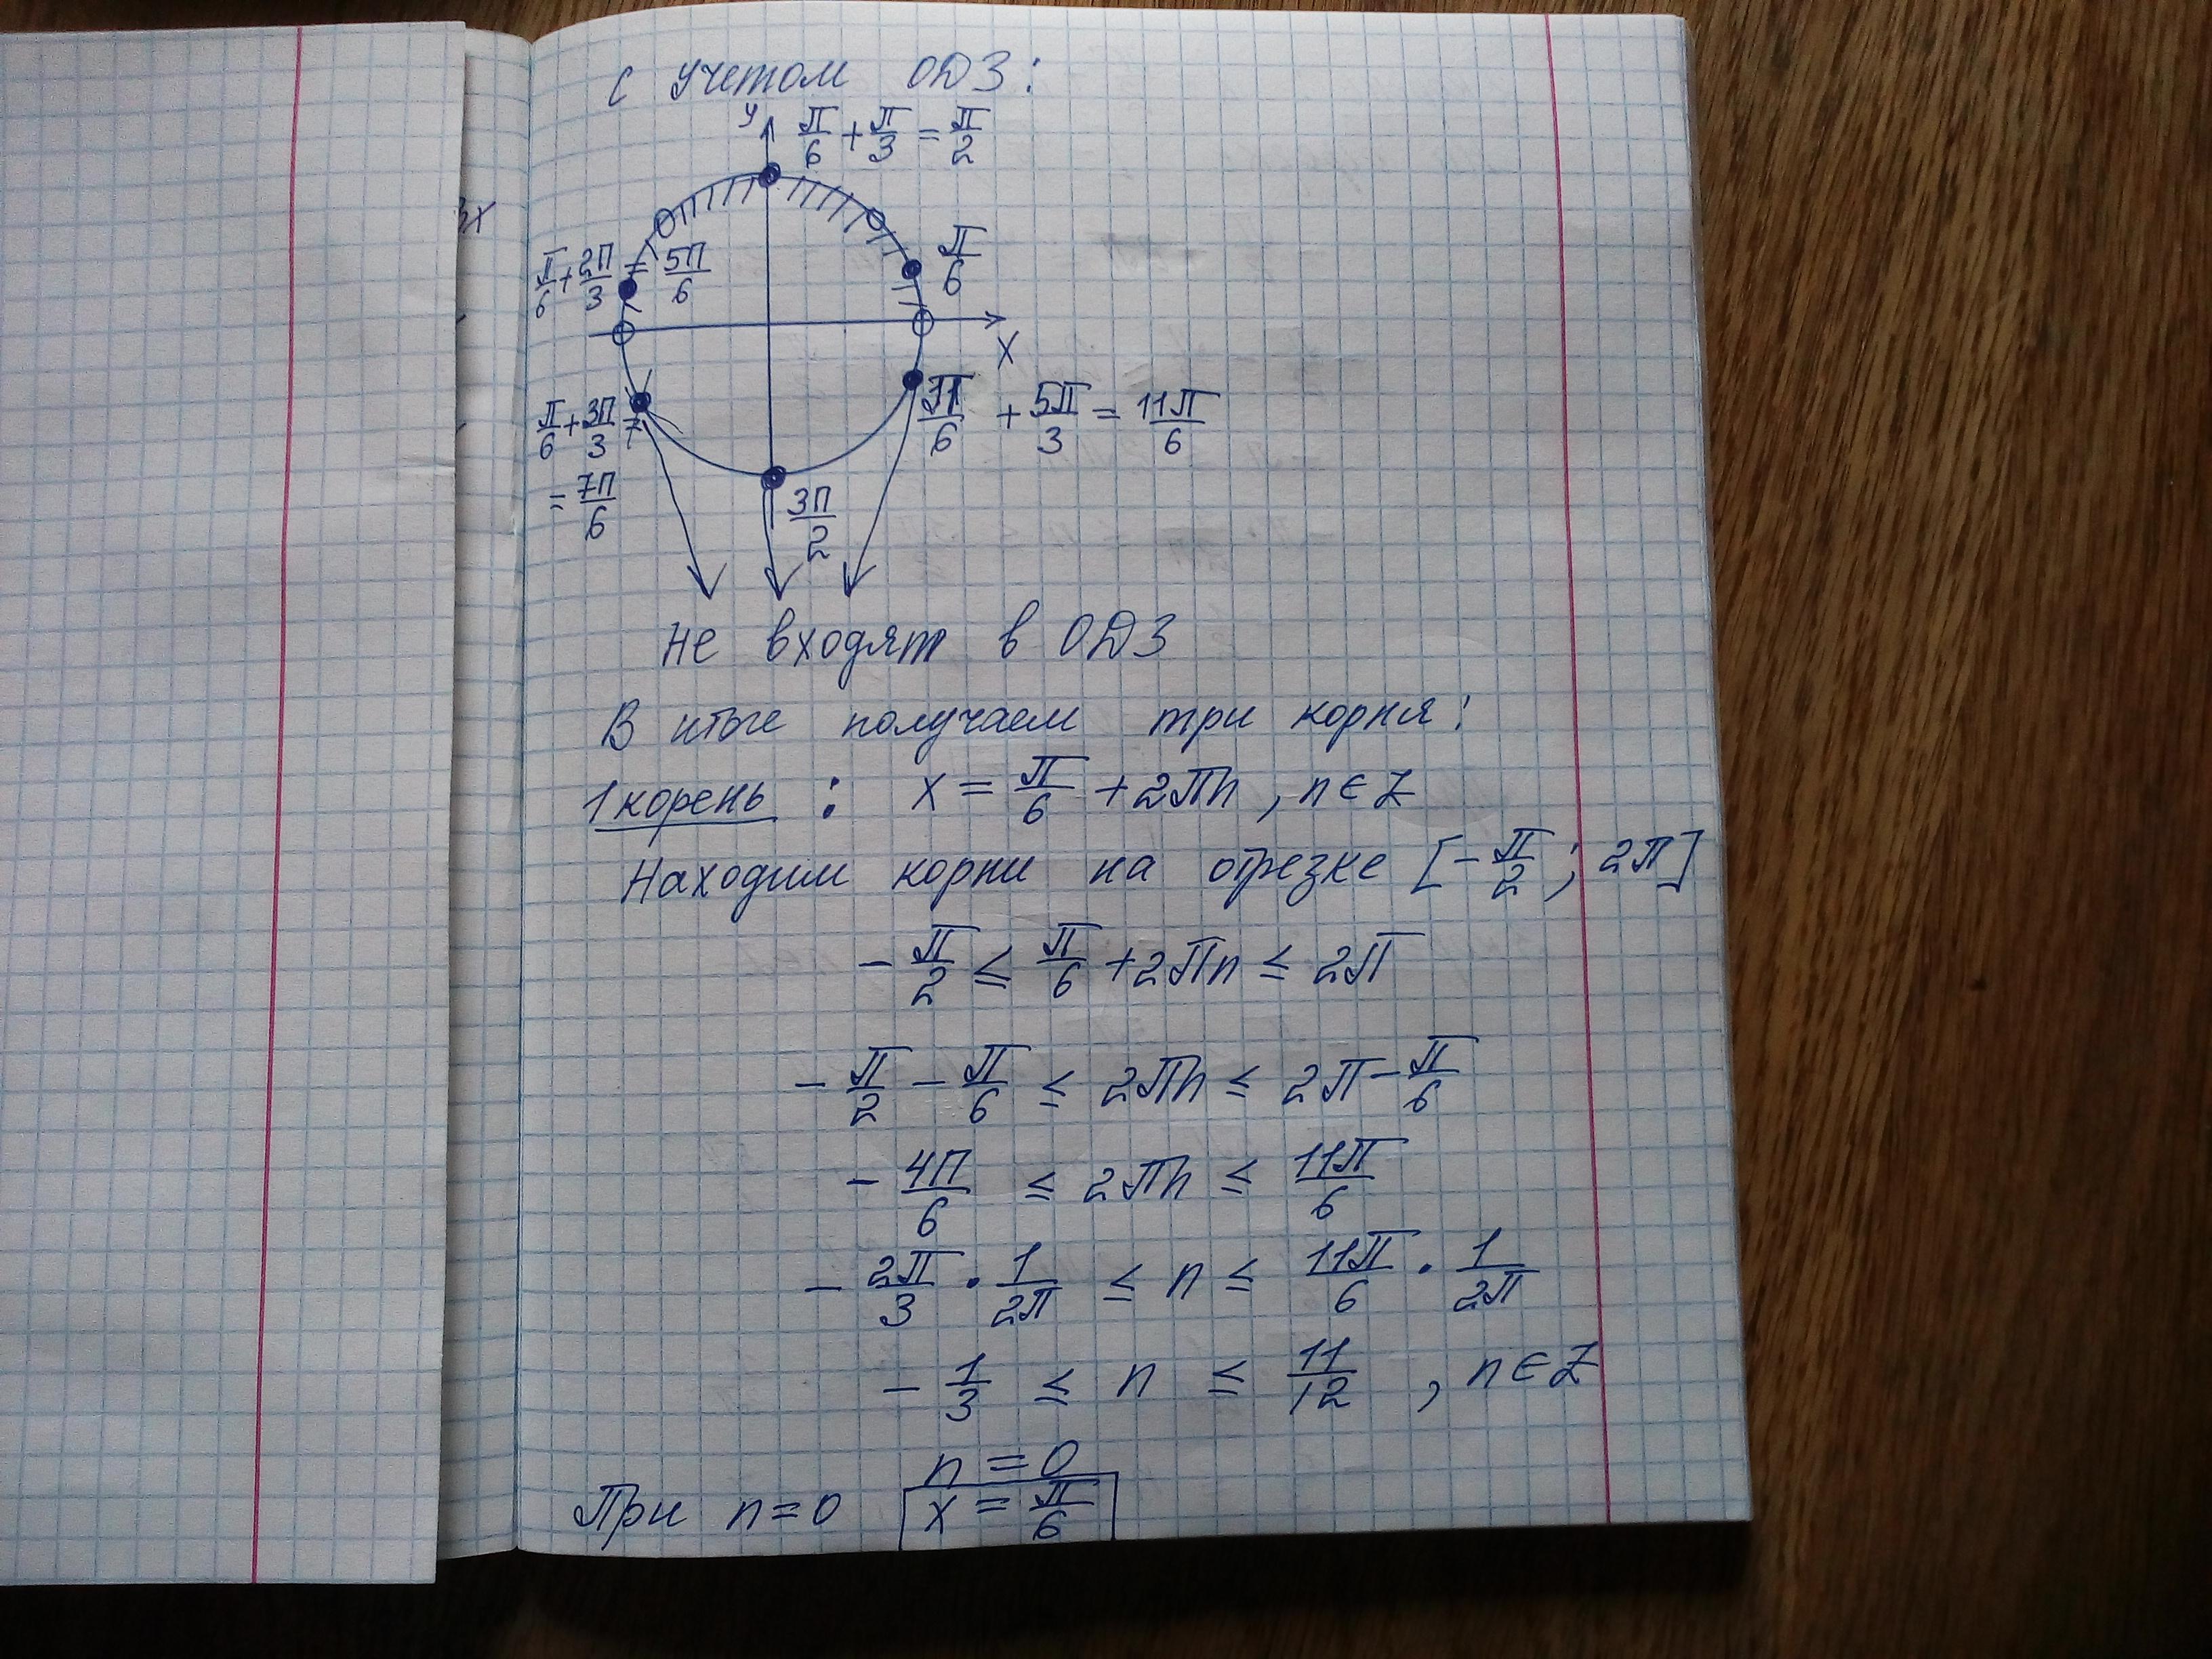 С учетом ОДЗ:
y
π/6 + π/3 = π/2
3x
π/6
π/6 + 2π/3 = 5π/6
x
π/6 + 5π/3 = 11π/6
π/6 + 3π/3 =
= 7π/6
3π/2
не входят в ОДЗ
В итоге получаем три корня:
1 корень : x = π/6 + 2πn , n ∈ Z
Находим корни на отрезке [-π/2 ; 2π]
- π/2 ≤ π/6 + 2πn ≤ 2π
- π/2 - π/6 ≤ 2πn ≤ 2π - π/6
- 4π/6 ≤ 2πn ≤ 11π/6
- 2π/3 · 1/2π ≤ n ≤ 11π/6 · 1/2π
- 1/3 ≤ n ≤ 11/12 , n ∈ Z
n = 0
При n = 0 x = π/6